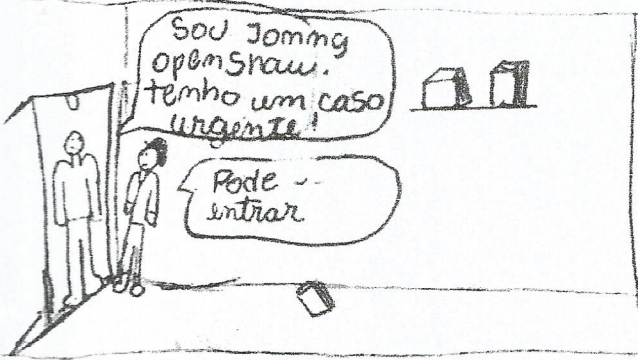 Sou Jomng
openshaw.
tenho um caso
urgente!
Pode --
entrar